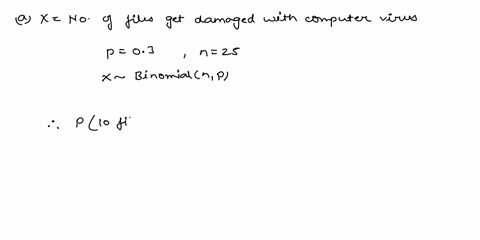 (a) X = No. of files get damaged with computer virus
p = 0.3 , n = 25
X ~ Binomial (n, p)
∴ P(10 fi